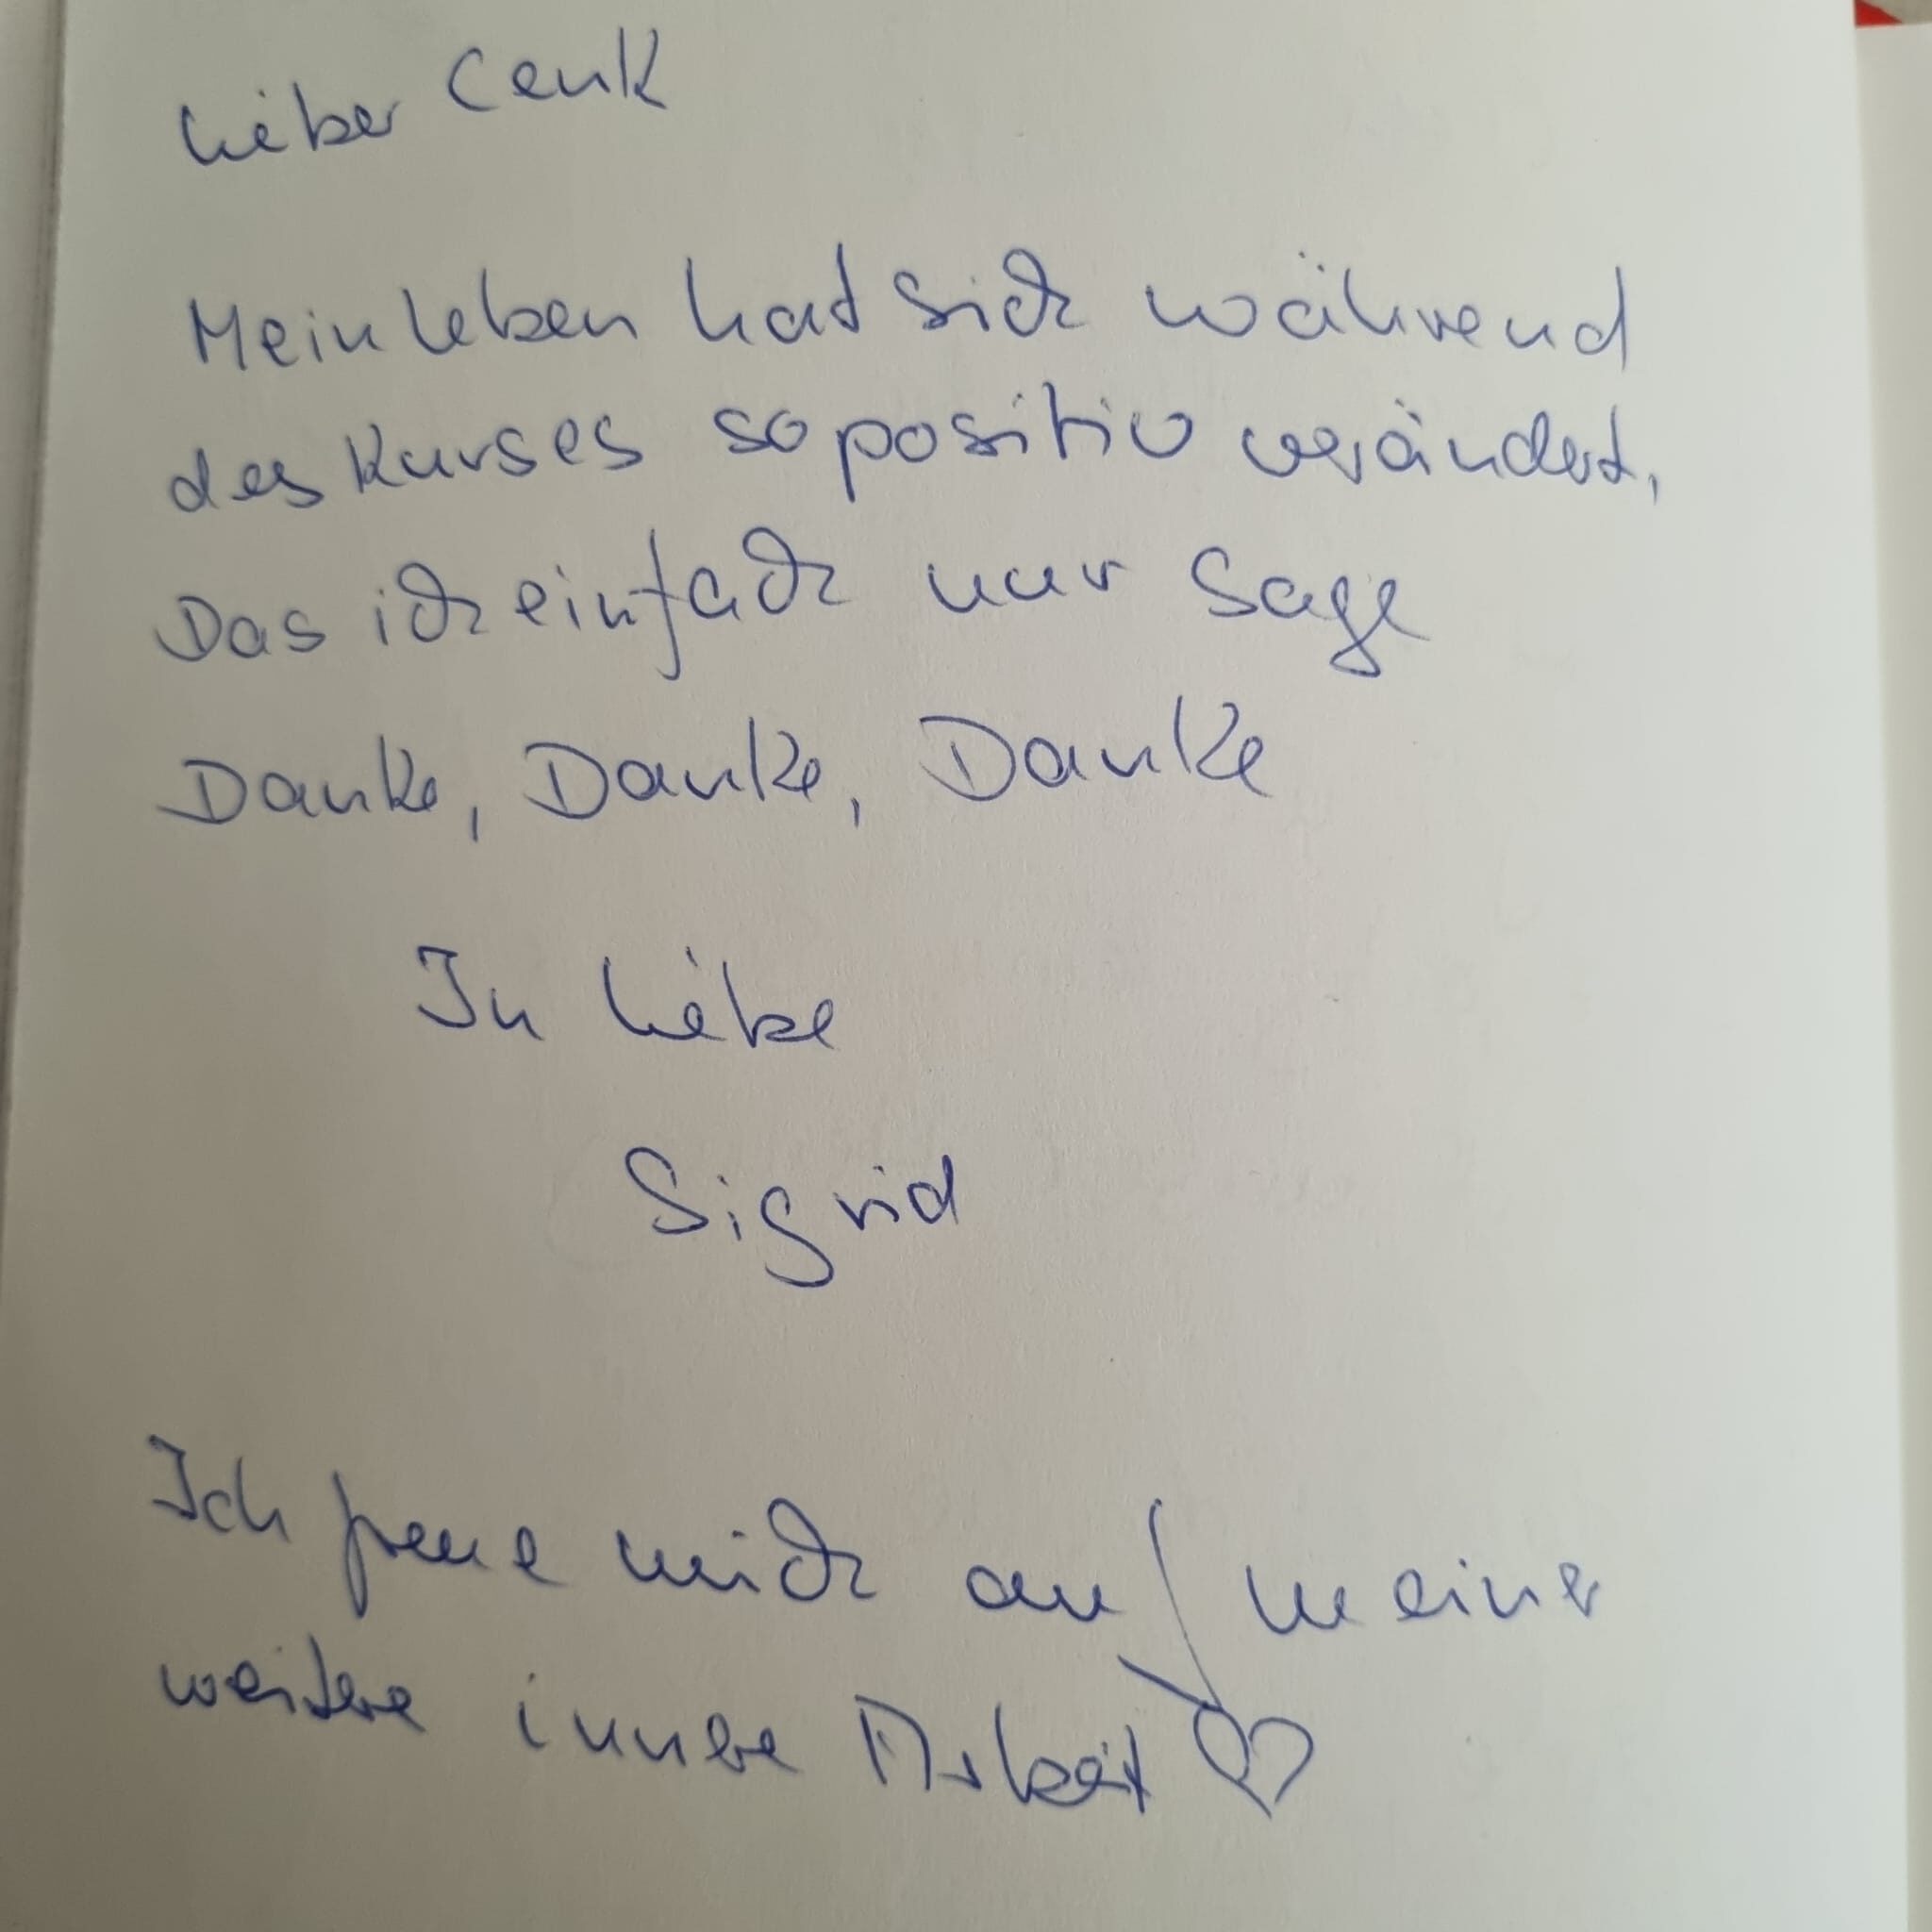 Lieber Cenk
Mein Leben hat sich während
des Kurses so positiv verändert,
Das ich einfach nur Sage
Danke, Danke, Danke
In Liebe
Sigrid
Ich freue mich auf meiner
weitere innere Arbeit